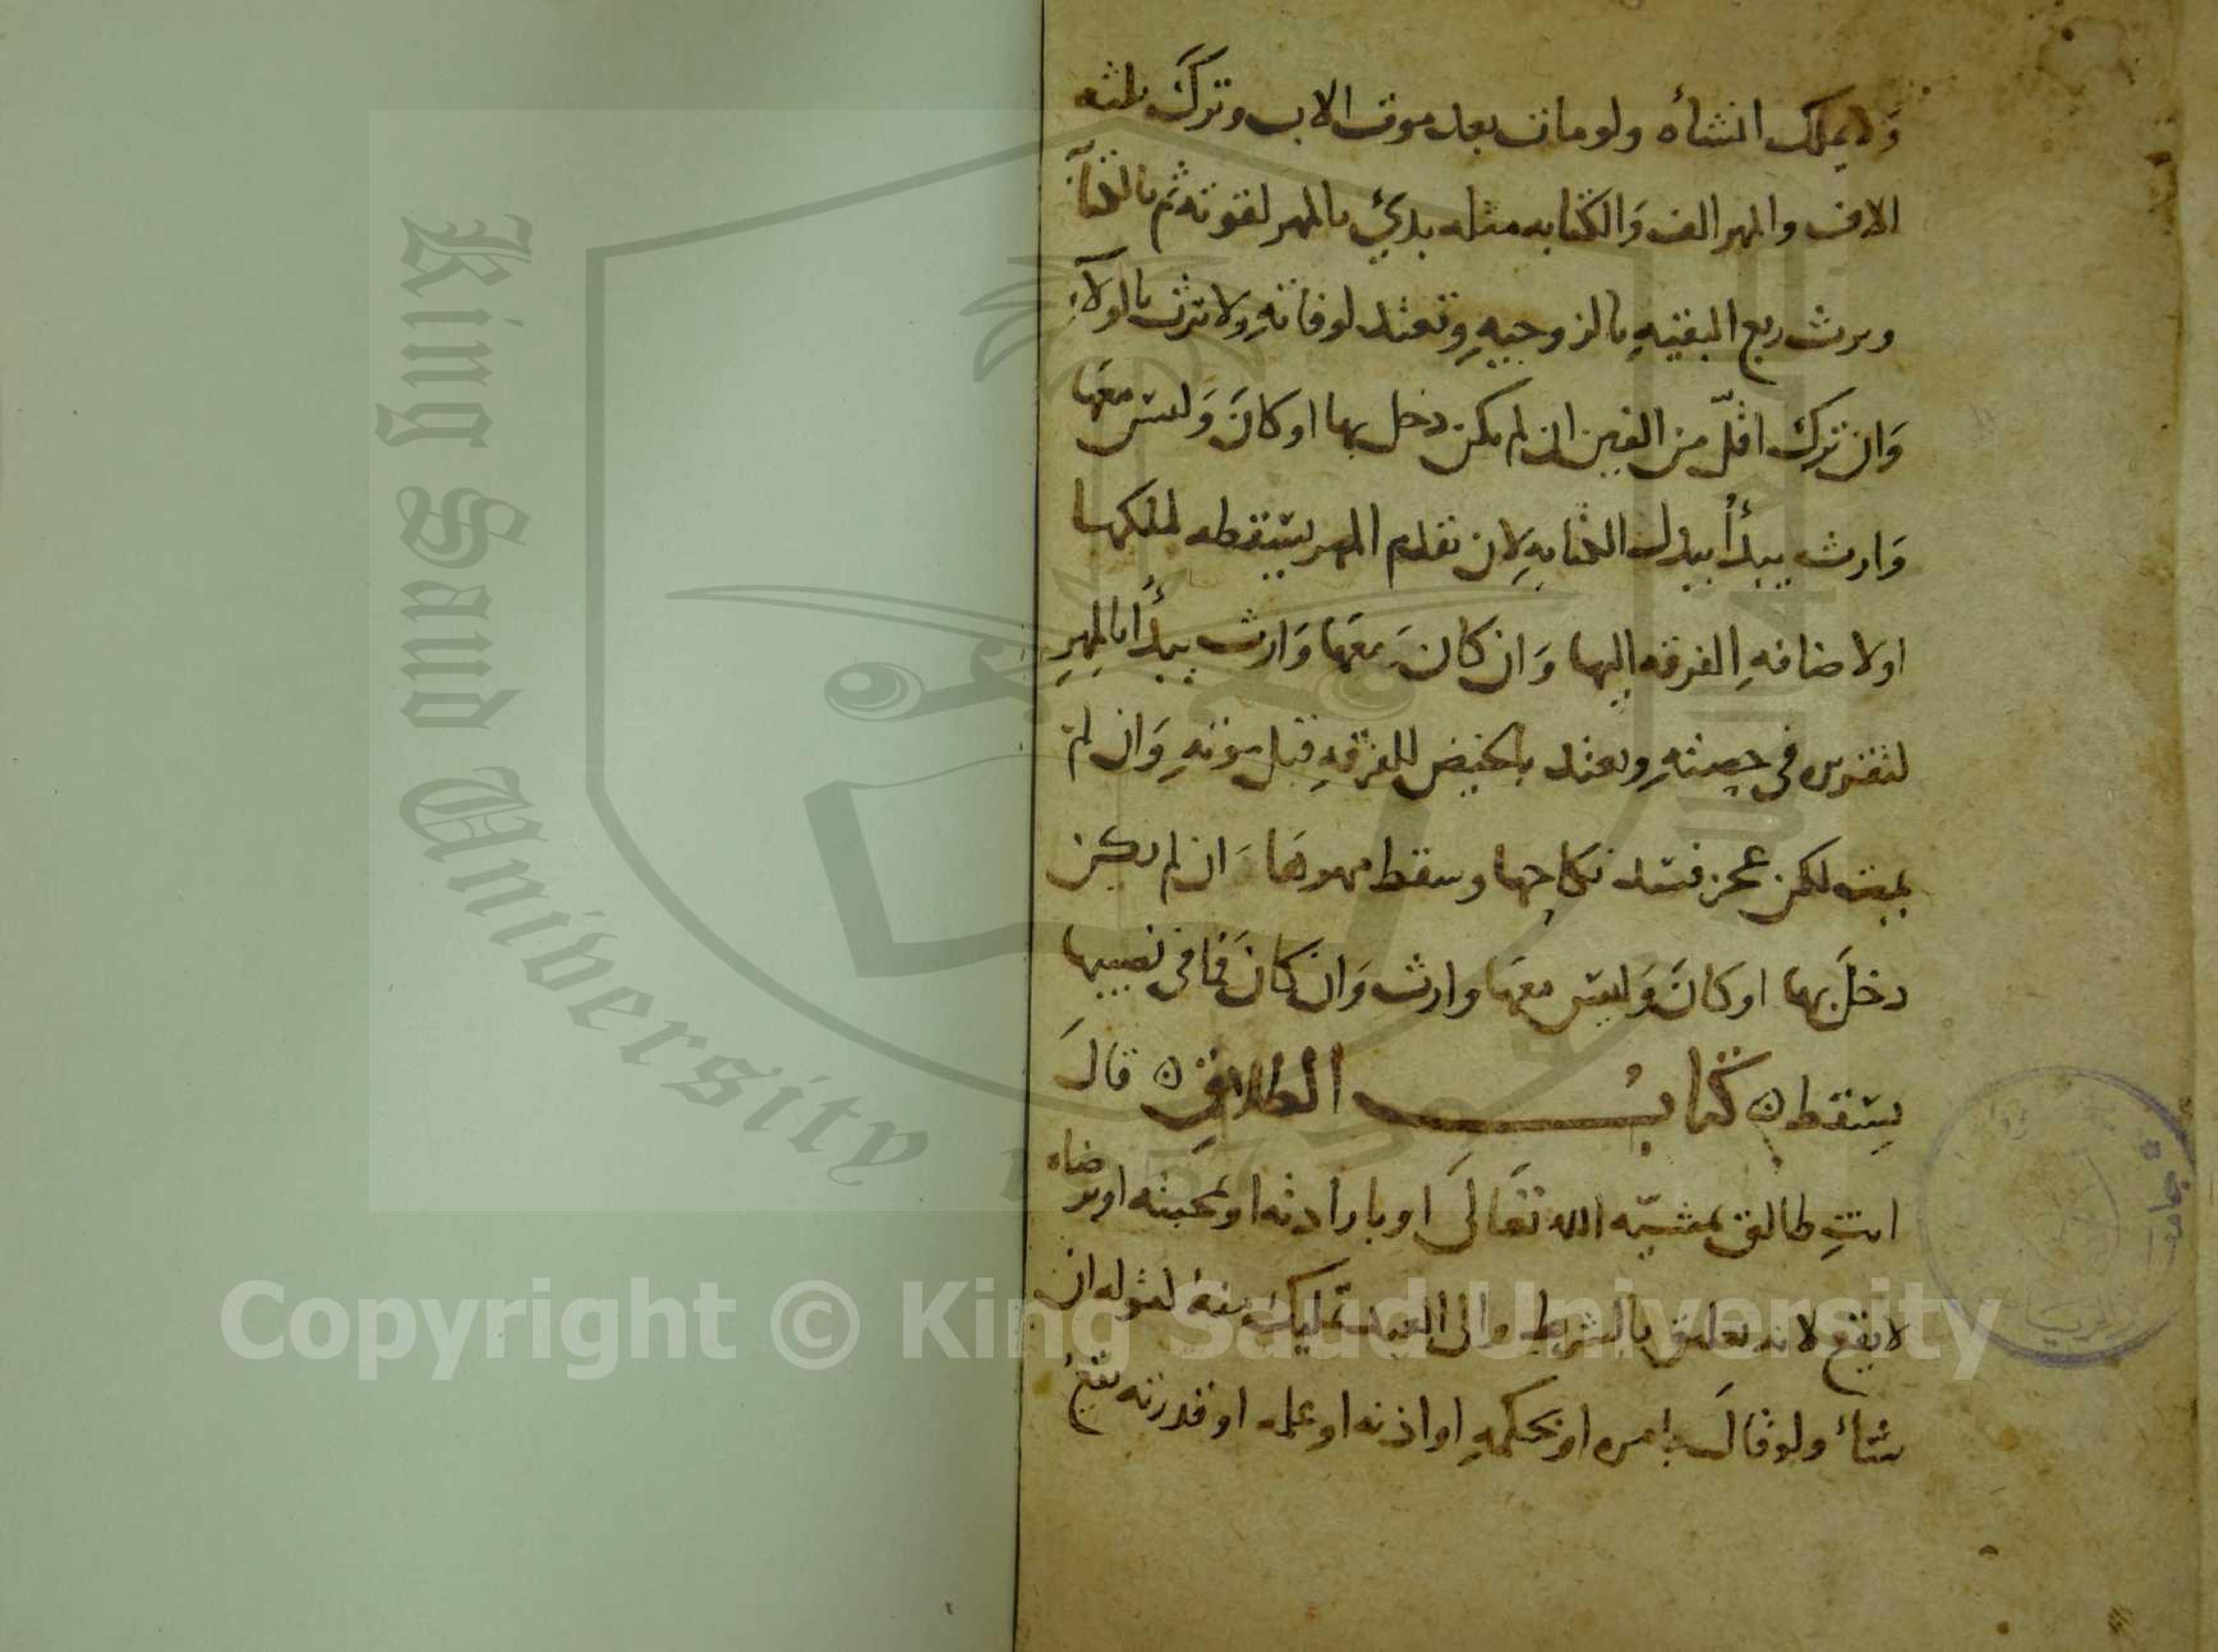 ولا يملك انشاه ولو مات بعد موت الاب وترك ثلثه
الاف والمهر الف وَالكتابه مثله بدئ بالمهر لقوته ثم بالكتابه
وترث ربع البقيهِ بالزوجيهِ وتعتد لوفاتهِ ولا ترث بالولاءِ
وَان ترك اقلّ من الفين ان لم يكن دخل بها او كانَ وَليس معَها
وَارث يبدأ ببدل الكتابهِ لان تقدم المهر يسقطه لملكها
او لاضافهِ الفرقه اليها وَان كانَ معَها وَارث يبدأ بالمهرِ
في حصتهِ وتعتد بالحيض للفرقهِ قبل موتهِ وَان لم
يمت لكن عجز فسد نكاحها وسقط مهرها ان لم يكن
دخلَ بها او كانَ وَليس معَها وارث وَان كانَ فما في نصيبها
يسقط ٥ كتابُ الطلاقِ ٥ قالَ
انتِ طالق بمشيّه الله تعَالىَ او بارادته او بمحبته او برضاه
لا يقع لانه تعليق بالشرط والى العبد تمليك منهُ لقوله ان
شاء ولو قالَ بامره او بحكمهِ او اذنه او علمه او قدرته يقعُ
Copyright © King Saud University
King Saud University